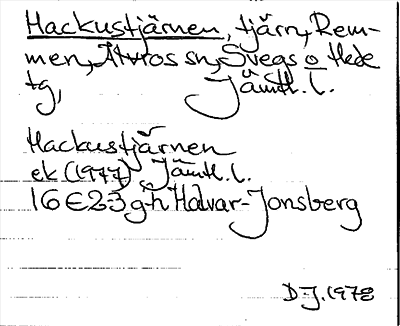 Hackustjärnen, tjärn, Rem-
men, Ätvros sn, Svegs o Hede
tg, Jämtl. l.
Hackustjärnen
ek (1977) Jämtl. l.
16 E 2-3 g-h Halvar-Jonsberg
D J. 1978